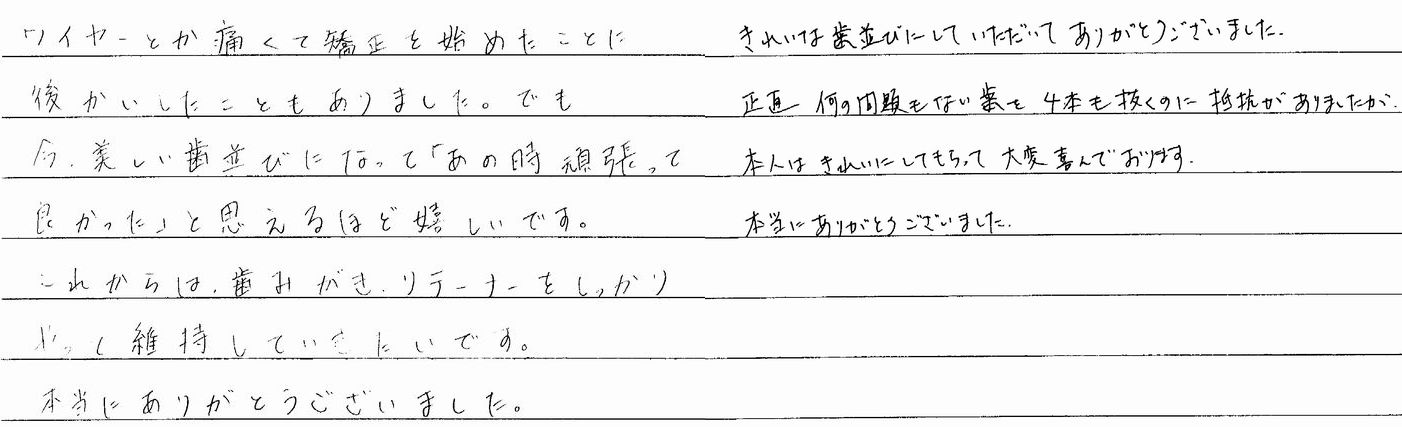 ワイヤーとか痛くて矯正を始めたことに
後かいしたこともありました。でも
今、美しい歯並びになって「あの時頑張って
良かった」と思えるほど嬉しいです。
これからは、歯みがき、リテーナーをしっかり
やって維持していきたいです。
本当にありがとうございました。
きれいな歯並びにしていただいてありがとうございました。
正直 何の問題もない歯を4本も抜くのに抵抗がありましたが、
本人はきれいにしてもらって大変喜んでおります。
本当にありがとうございました。